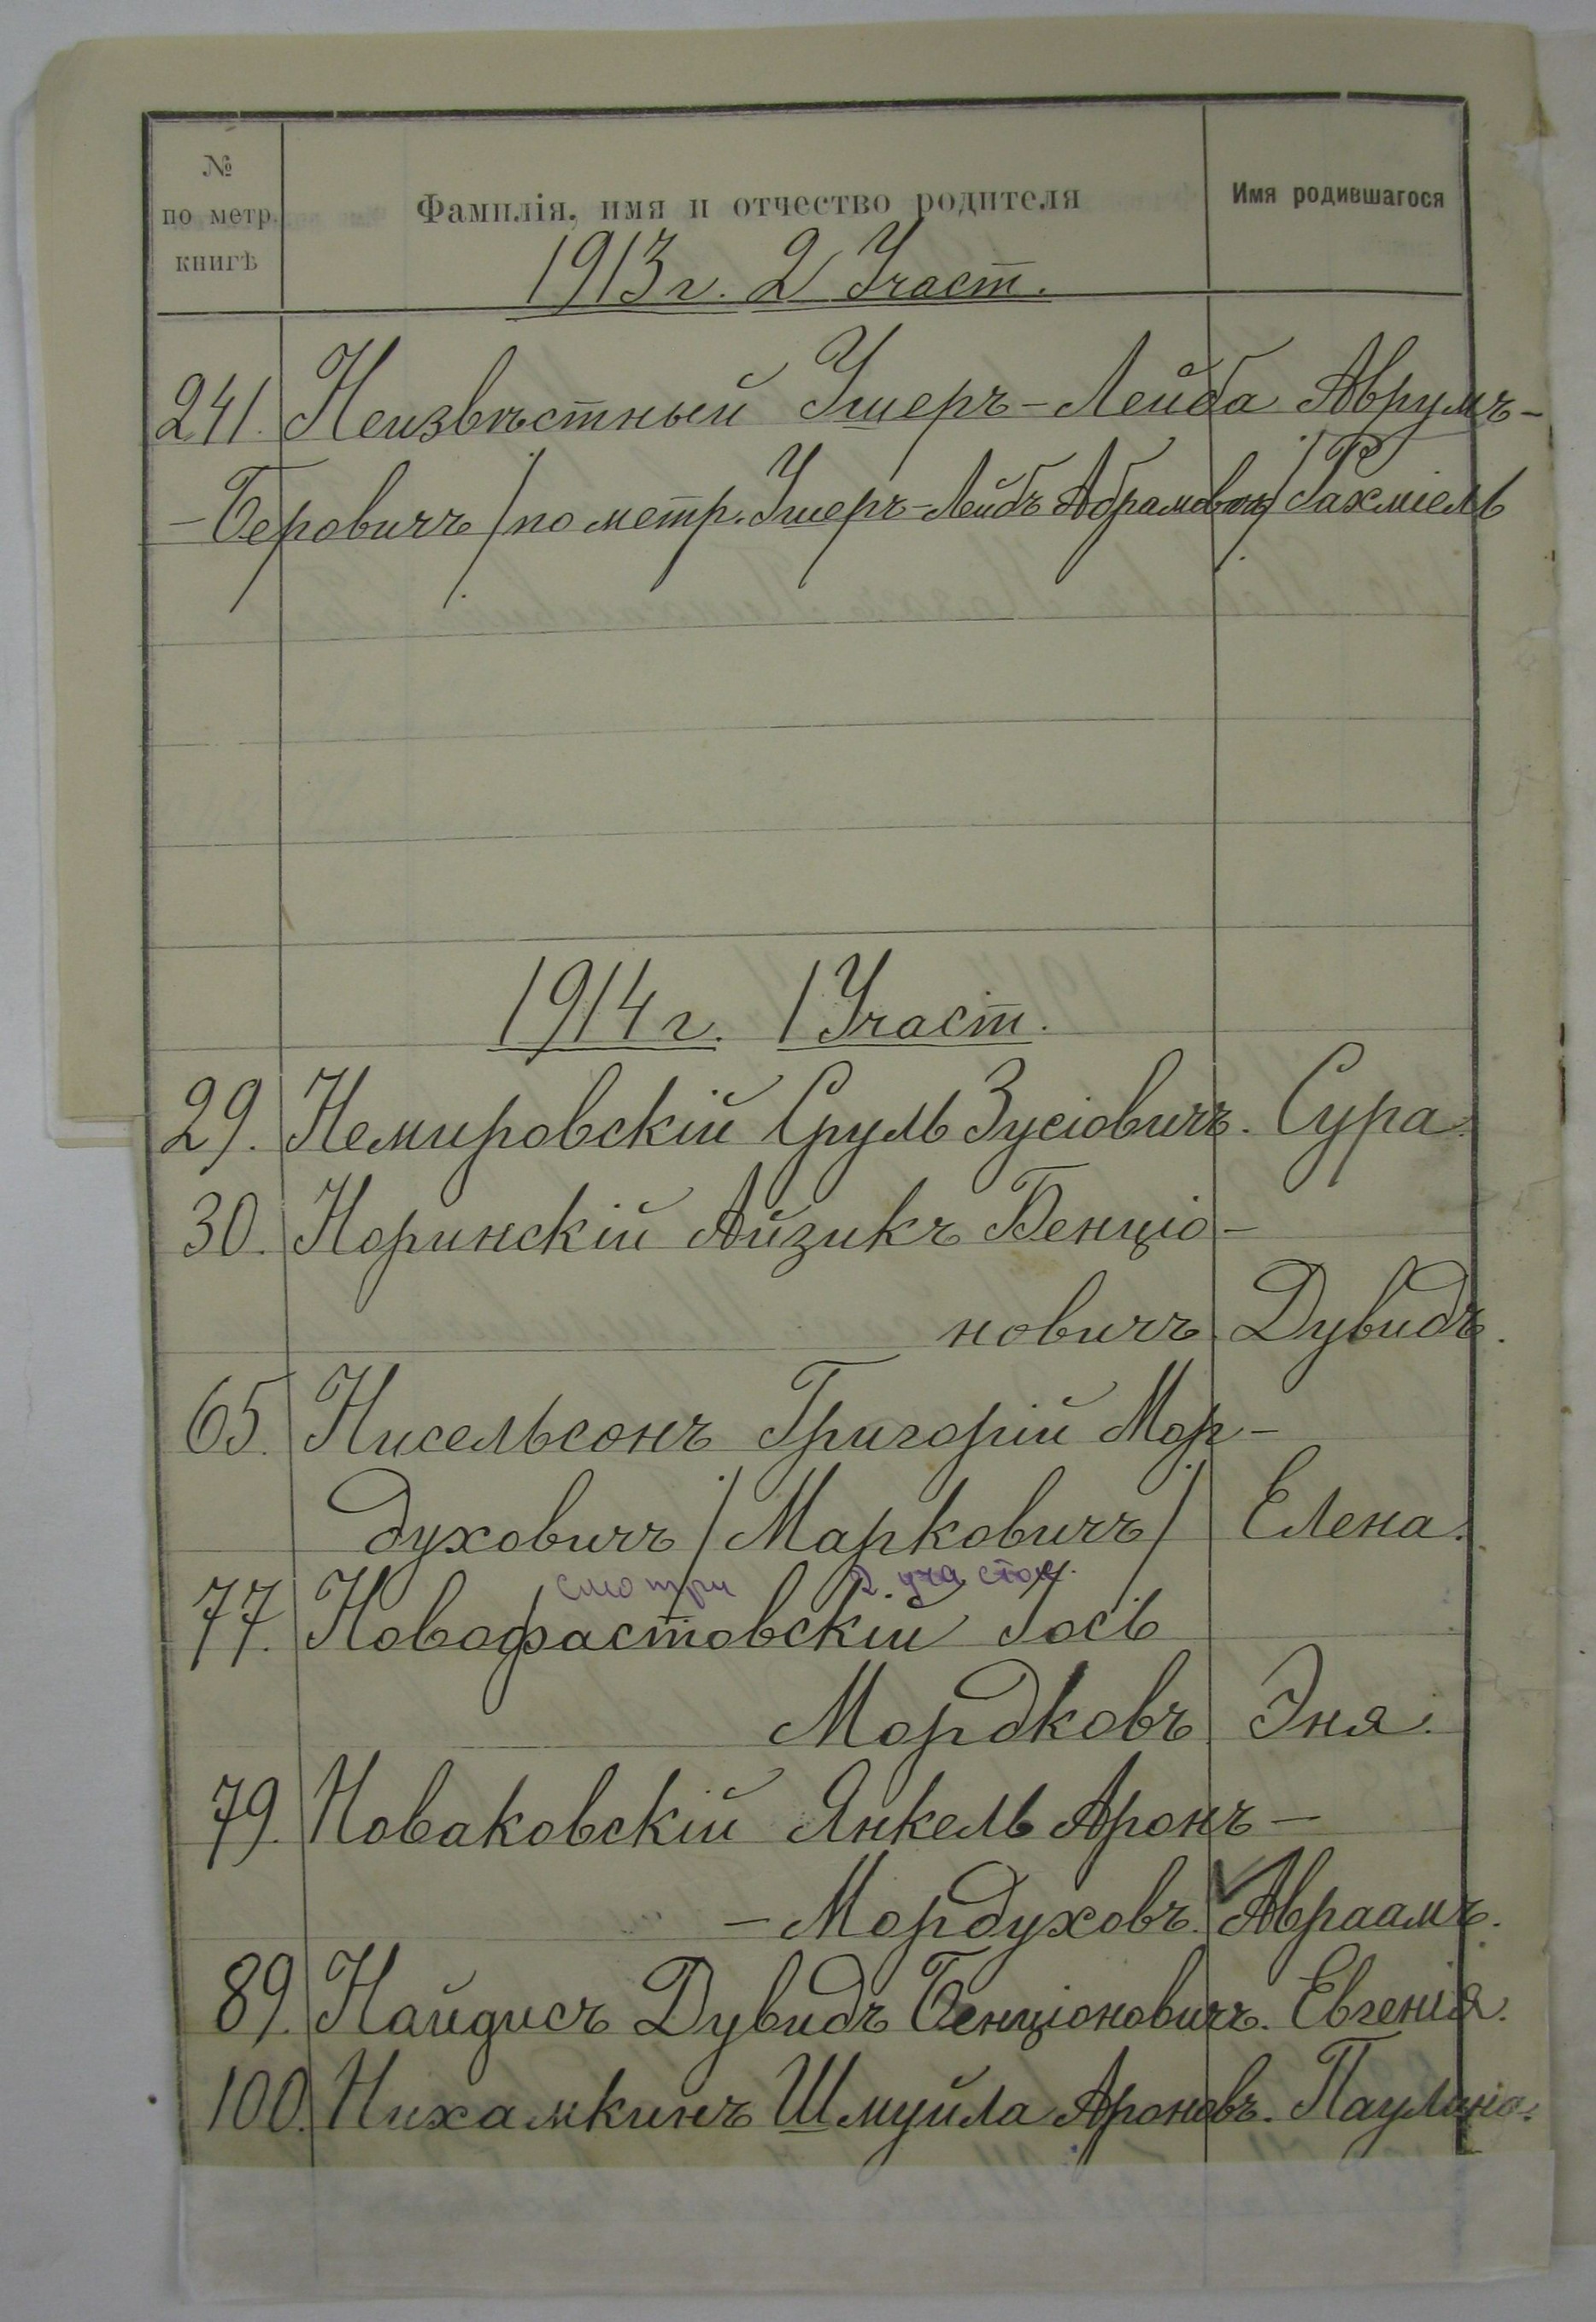 № по метр. книгѣ
Фамилія, имя и отчество родителя
Имя родившагося
1913 г. 2 Участ.
241. Неизвѣстный Ушеръ-Лейба Аврумъ-
-Беровичъ /по метр. Ушеръ-Лейбъ Абрамовичъ/ Рахміель
1914 г. 1 Участ.
29. Немировскій Сруль Зусіовичъ. Сура.
30. Норинскій Айзикъ Бенціо-
новичъ. Дувидъ.
65. Нисельсонъ Григорій Мор-
духовичъ /Марковичъ/ Елена.
смотри 2 участок.
77. Новофастовскій Іось
Мордковъ Эня.
79. Новаковскій Янкель Аронъ-
-Мордуховъ. Авраамъ.
89. Найдисъ Дувидъ Бенціоновичъ. Евгенія.
100. Нихамкинъ Шмуйла Ароновъ. Паулина.